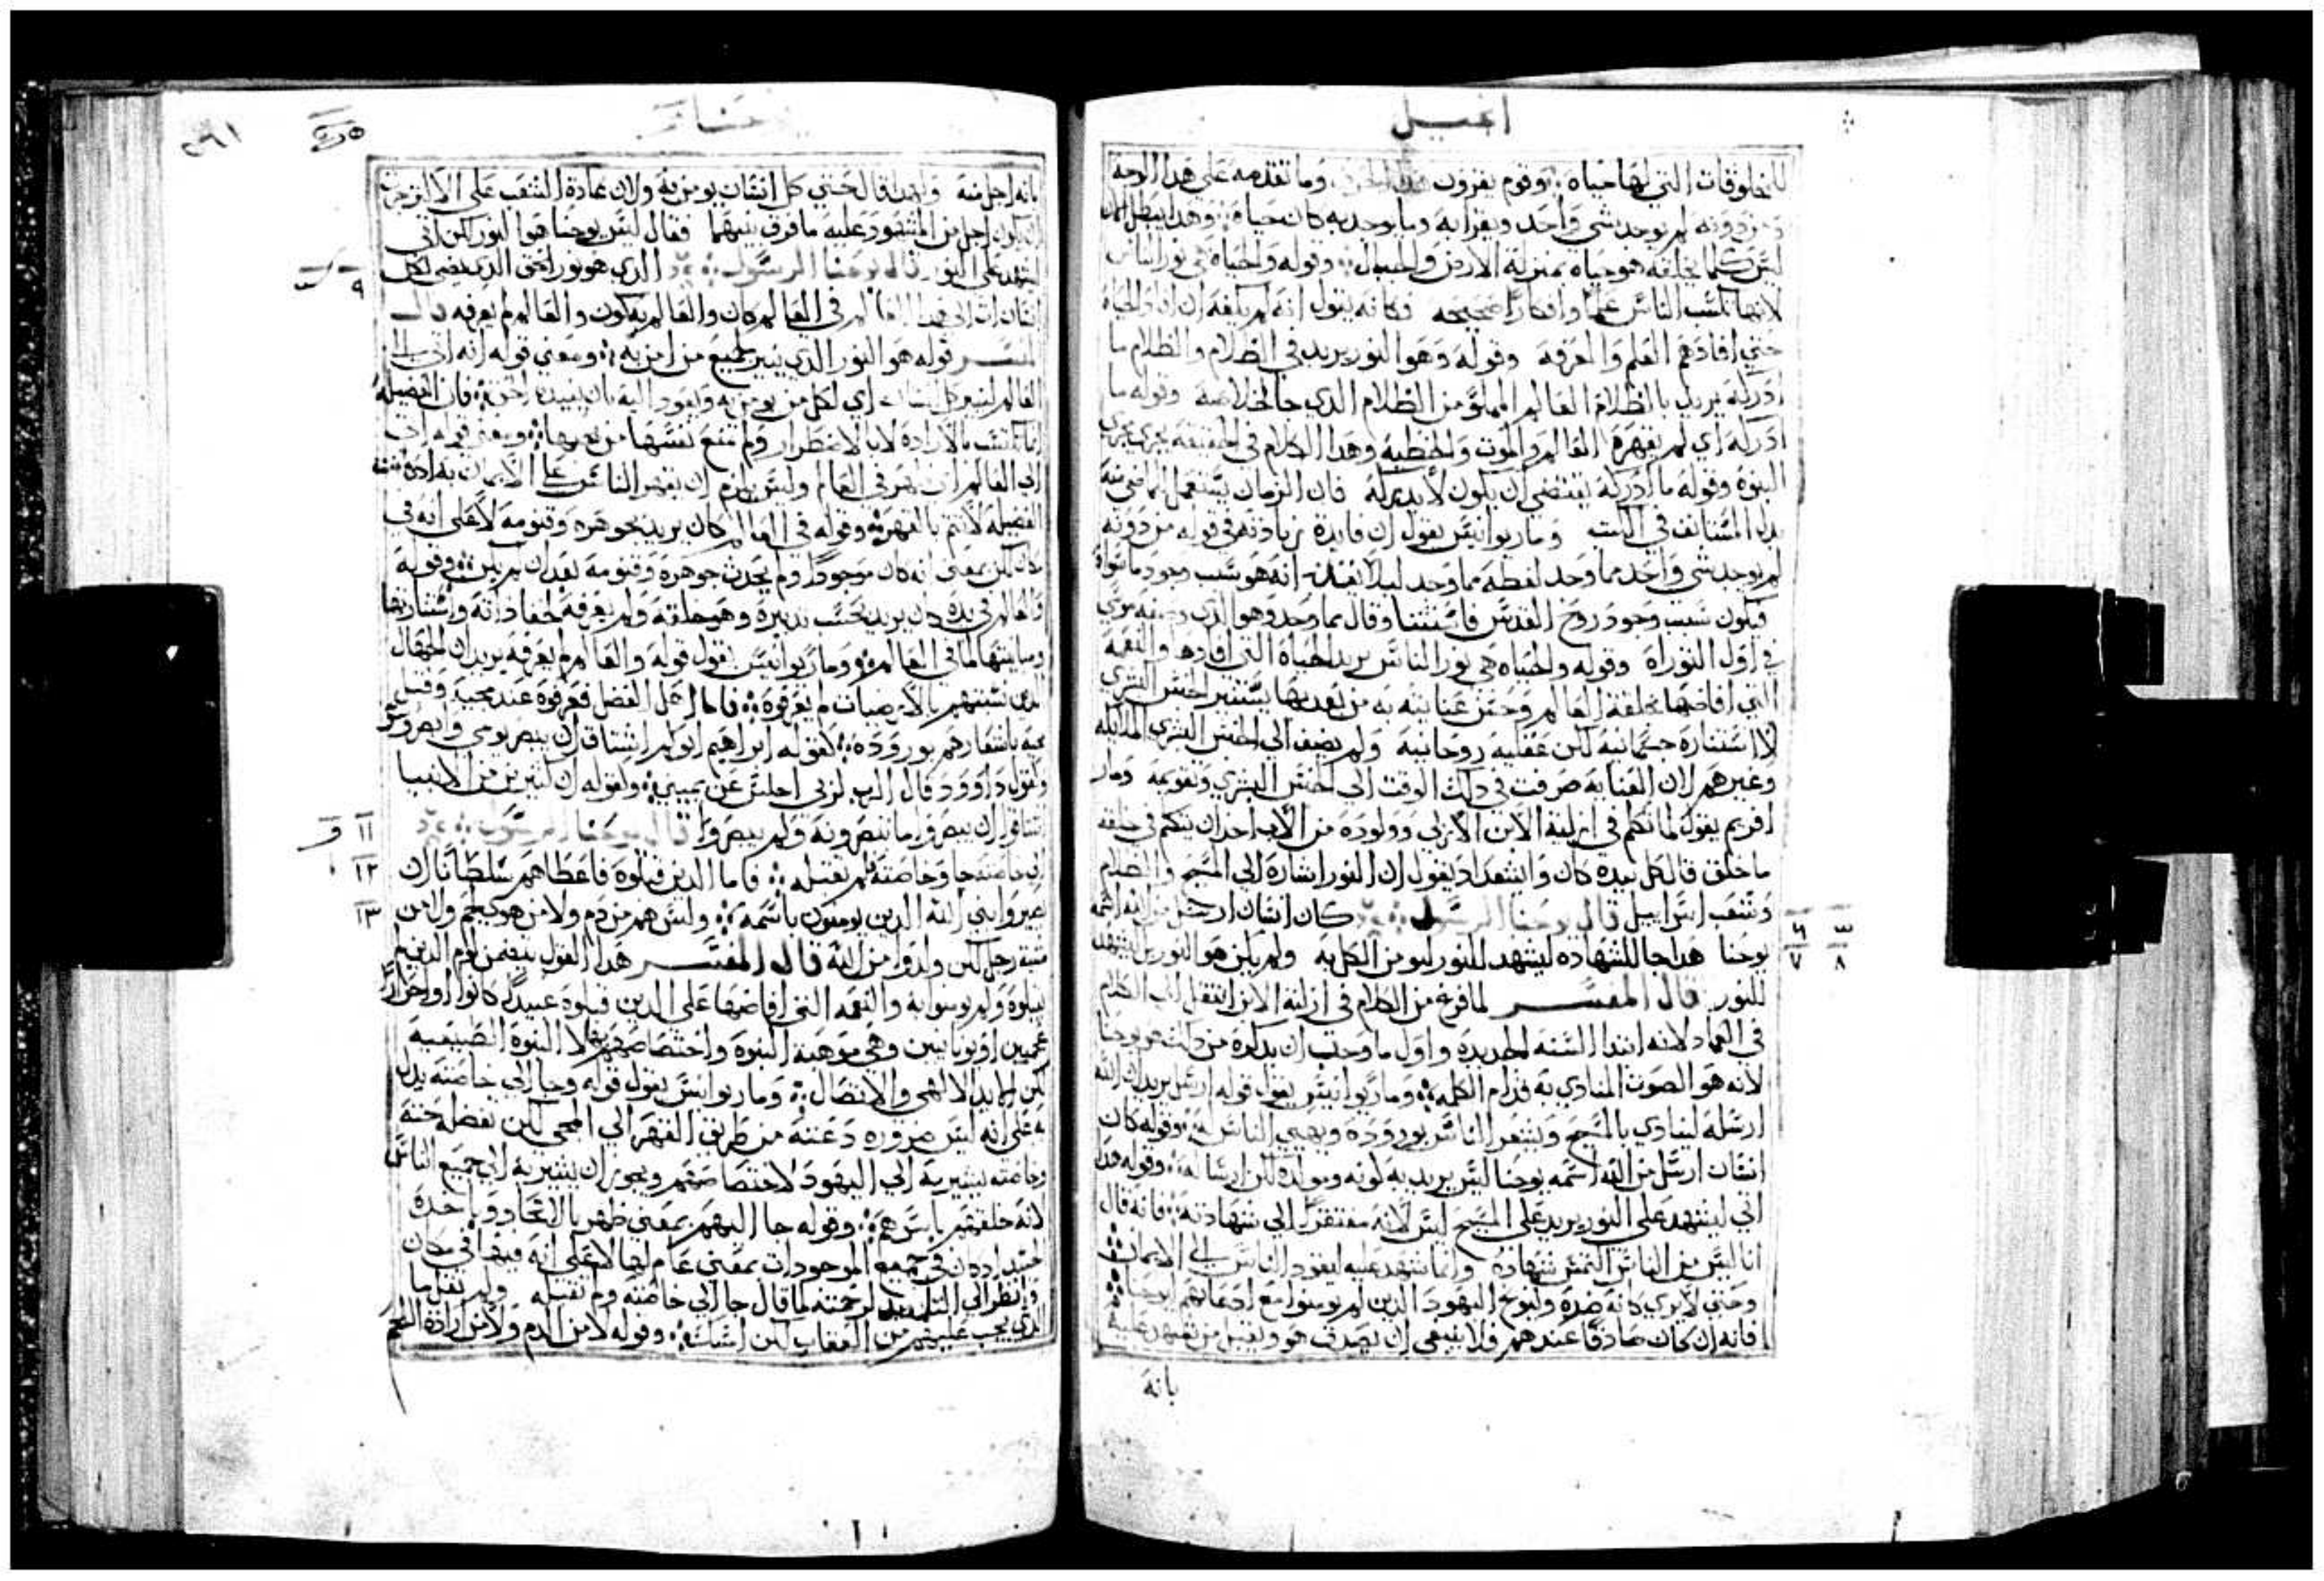 انجيل
المخلوقات التي لها حياه وقوم يقرون وما تقدمه على هدا الوجه
ومن دونه لم يوجد شي واحد ويقرا به وما يوجد به كان حياه وهدا يبطل لان
ليس كلما يخلقه هو حياه بمنزلة الارض والجبال وقوله والحياه هي نور الناس
لانها تكسب الناس علما وافكارا صحيحه فكانه يقول انه لم يكفه ان
حتي افادهم العلم والمعرفه وقوله وهو النور يريد في الظلام والظلام ما
ادركه يريد بالظلام العالم المملو من الظلام الدي جا لخلاصه وقوله ما
ادركه اي لم يقهره العالم والموت والخطيه وهدا الكلام في الحقيقه يجري مجري
النبوه وقوله ما ادركه يقتضي ان يكون لا يدركه فان الزمان يستعمل الماضي منه
بدل المستانف في الكتب ومار يوانيس يقول ان فايدة زيادته في قوله من دونه
لم يوجد شي واحد مما وجد لفظه مما وجد ليلا يعتقد انه هو سبب وجود ما سواه
فيكون سبب وجود روح القدس فاستثنا وقال مما وجد وهو الدي وصفه موسي
في اول التوراه وقوله والحياه هي نور الناس يريد الحياة التي افادها والنعمه
التي افاضها بخلقة العالم وحسن عنايته به من بعد بها يستنير الجنس البشري
لا استناره جسمانيه لكن عقليه روحانيه ولم يضف الي الجنس البشري الملايكه
وغيرهم لان العنايه صرفت في دلك الوقت الي الجنس البشري وتقويمه ومار
افريم يقول لما تكلم في ازلية الابن الازلي وولوده من الاب اخد ان يتكلم في خلقه
ما خلق فقال كل بيده كان واليشعداد يقول ان النور اشاره الي المسيح والظلام
وشعب اسراييل قال يوحنا الرسول كان انسان ارسل من الله اسمه
يوحنا هدا جا للشهاده ليشهد للنور ليومن الكل به ولم يكن هو النور بل ليشهد
للنور قال المفسر لما فرغ من الكلام في ازلية الابن انتقل الي الكلام
في العماد لانه ابتدا السنه الجديده واول ما وجب ان يدكره من دلك هو يوحنا
لانه هو الصوت المنادي به قدام الكلمه ومار يوانيس يقول قوله ارسل يريد ان الله
ارسله لينادي بالمسيح ويشعر الناس بوروده ويهيي الناس له وقوله كان
انسان ارسل من الله اسمه يوحنا ليس يريد به كونه ومولده لكن ارساله وقوله هدا
اتي ليشهد على النور يريد على المسيح ليس لانه مفتقرا الي شهادته فانه قال
انا ليس من الناس التمس شهاده وانما شهد عليه ليقود الناس الي الايمان
وحتي لا يري كانه ضده وليوبخ اليهود الدين لم يومنوا مع ادعانهم ليوحنا
فانه ان كان صادقا عندهم فلا ينبغي ان يصدق هو ويقبل من شهد عليه
بانه
٦
٧
٨
بانه اجل منه ولهدا قال حتي كل انسان يومن به ولان عادة الشعب على الاكثر جرت
ان يكون اجل من المشهود عليه ما فرق بينهما فقال ليس يوحنا هو النور لكن اتي
ليشهد على النور قال يوحنا الرسول الدي هو نور الحق الدي يضي لكل
انسان ات الي هدا العالم في العالم كان والعالم به كون والعالم لم يعرفه قال
المفسر قوله هو النور الدي ينير لجميع من امن به ومعني قوله انه اتي الي
العالم لينير كل انسان اي لكل من يومن به ويقود اليه بان يفيده الحق فان الفضيله
انما تكتسب بالاراده لا بالاضطرار ولم تمنع نفسها من يريدها ومعني قوله اتي
الي العالم ان ظهر في العالم وليس يلزم ان يقهر الناس على الايمان به اد
الفضيله لا تتم بالقهر وقوله في العالم كان يريد بجوهره وقنومه لا على انه في
مكان لكن بمعني انه كان موجودا ولم يحدث جوهره وقنومه بعد ان لم يكن وقوله
والعالم في يده كان يريد بحسب تدبيره وهو خلقه ولم يعرفه لخفا داته واستتارتها
ومباينتها لما في العالم ومار يوانيس يقول قوله والعالم لم يعرفه يريد ان الجهال
الدين تشبثهم بالارضيات لم يعرفوه فاما اهل الفضل فعرفوه عند مجيه وقبل
مجيه باشعارهم بوروده كقوله ابراهيم ابوكم اشتاق ان يبصر يومي وابصر وسر
وكقول داوود قال الرب لربي اجلس عن يميني وكقوله ان كثيرين من الانبيا
اشتاقوا ان يبصروا ما تبصرونه ولم يبصروا قال يوحنا الرسول
الي خاصته جا وخاصته لم تقبله فاما الدين قبلوه فاعطاهم سلطانا ان
يصيروا بني الله الدين يومنون باسمه وليس هم من دم ولا من هوي لحم ولا من
مشية رجل لكن ولدوا من الله قال المفسر هدا القول يتضمن لوم الدين لم
يقبلوه ولم يومنوا به والنعمه التي افاضها على الدين قبلوه عبيدا كانوا او احرارا
عجميين او يونانيين وهي موهبة البنوه واختصاصهم بها لا البنوه الطبيعيه
لكن بالتاييد الالهي والاتصال ومار يوانيس يقول قوله وجا الي خاصته يدل
به على انه ليس ضروره دعته من طريق القهر الي المجي لكن تفضل منه
وخاصته يشير به الي اليهود لاختصاصهم ويجوز ان يشير به الي جميع الناس
لانه خلقهم باسرهم وقوله جا اليهم بمعني ظهر بالاتحاد وباخده
الجسد اد كان في جميع الموجودات بمعني عام لها لا على انه فيها في مكان
وانظر الي التلميد لرحمته لما قال جا الي خاصته ولم تقبله ولم يقل ما
الدي يجب عليهم من العقاب لكن امسك وقوله لا من الدم ولا من ارادة اللحم
٩
١١
١٢
١٣
٢٩١